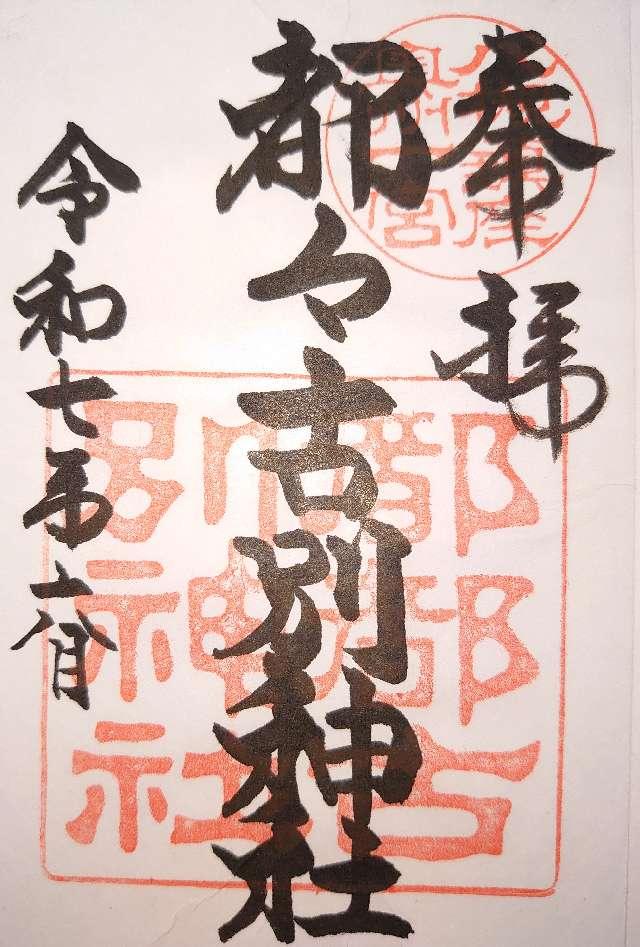 奉拝
都々古別神社
令和七年六月
都都古別神社